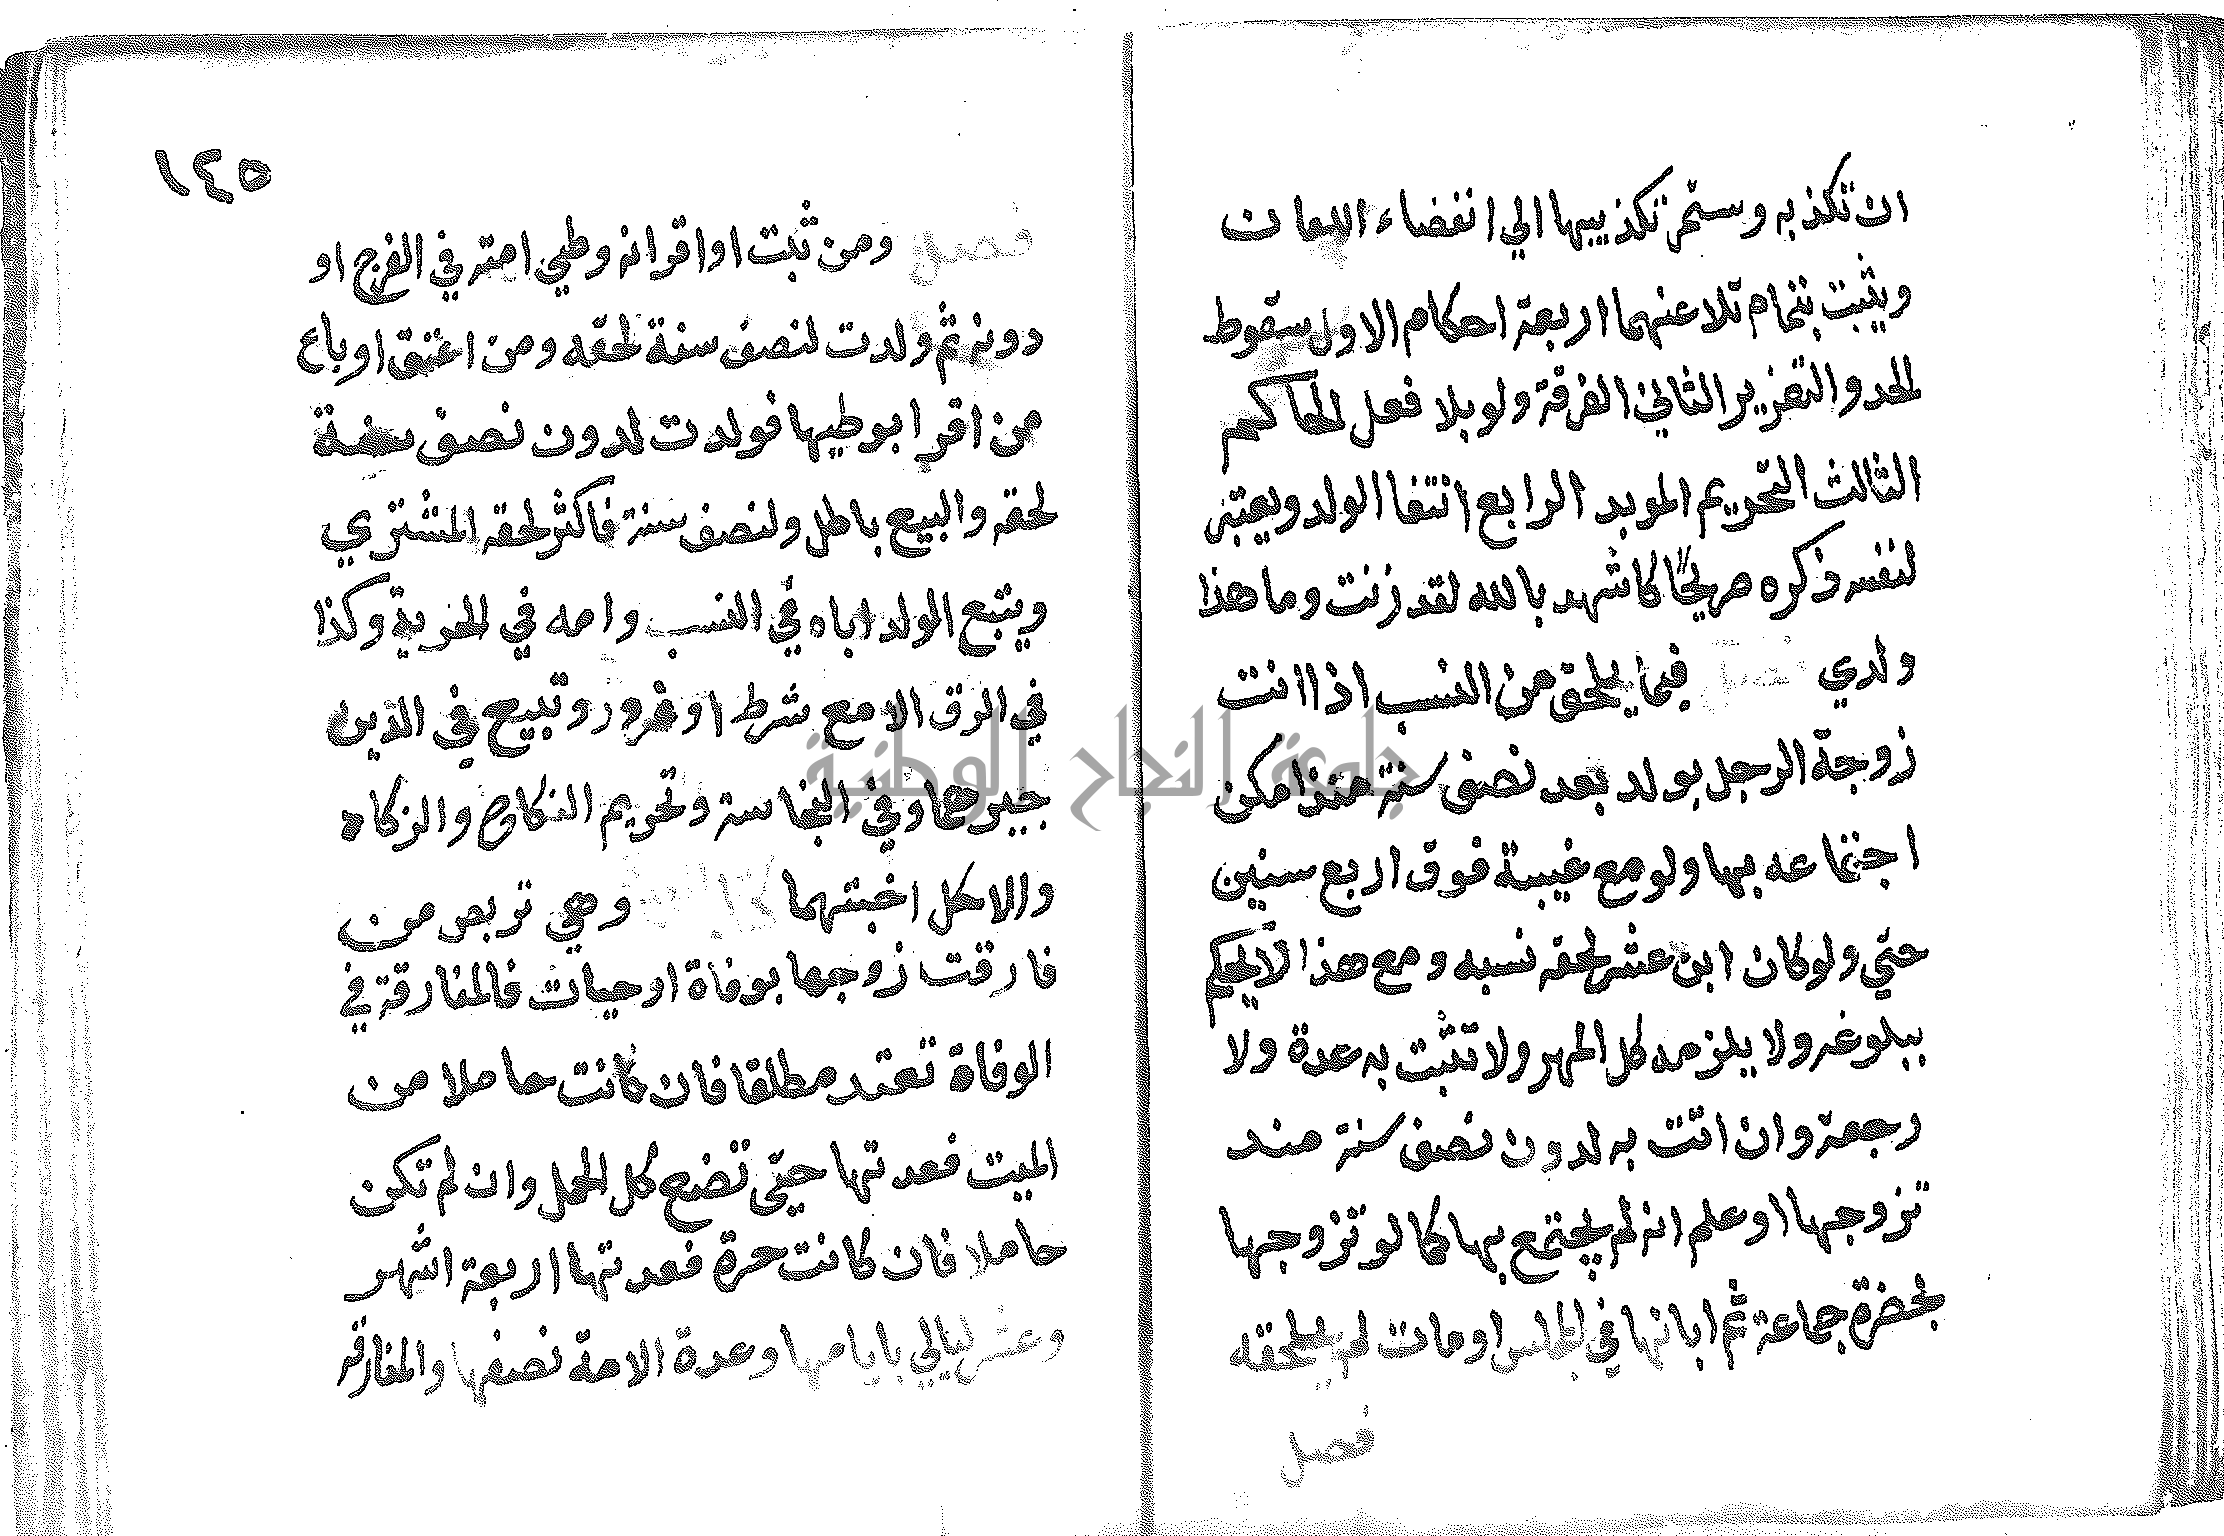 ان تكذبه وستمر تكذيبها الي انقضاء اللعان
ويثبت بتمام تلاعنهما اربعة احكام الاول سقوط
الحد والتعزير الثاني الفرقة ولو بلا فعل الحاكم
الثالث التحريم الموبد الرابع انتفا الولد ويعتبر
لنفيه ذكره صريحًا كاشهد بالله لقد زنت وما هذا
ولدي فصل فيما يلحق من النسب اذا اتت
زوجة الرجل بولد بعد نصف سنة منذ امكن
اجتماعه بها ولو مع غيبة فوق اربع سنين
حتي ولو كان ابن عشر لحقه نسبه ومع هذا لا يحكم
ببلوغه ولا يلزمه كل المهر ولا تثبت به عدة ولا
رجعة وان اتت به لدون نصف سنة منذ
تزوجها او علم انه لم يجتمع بها كما لو تزوجها
بحضرة جماعة ثم ابانها في المجلس او مات لم يلحقه
فصل
١٤٥
فصل ومن ثبت او اقر انه وطي امته في الفرج او
دونه ثم ولدت لنصف سنة لحقه ومن اعتق او باع
من اقر بوطيها فولدت لدون نصف سنة
لحقه والبيع باطل ولنصف سنة فاكثر لحقه المشتري
ويتبع الولد اباه في النسب وامه في الحرية وكذا
في الرق الا مع شرط او غرور وتبيع في الدين
خيرهما وفي النجاسة وتحريم النكاح والزكاه
والاكل اخبثهما كتاب العدة وهي تربص من
فارقت زوجها بوفاة او حيات فالمفارقة في
الوفاة تعتد مطلقا فان كانت حاملا من
الميت فعدتها حتي تضع كل الحمل وان لم تكن
حاملا فان كانت حرة فعدتها اربعة اشهر
وعشر ليالي بايامها وعدة الامة نصفها والمفارقه
جامعة النجاح الوطنية